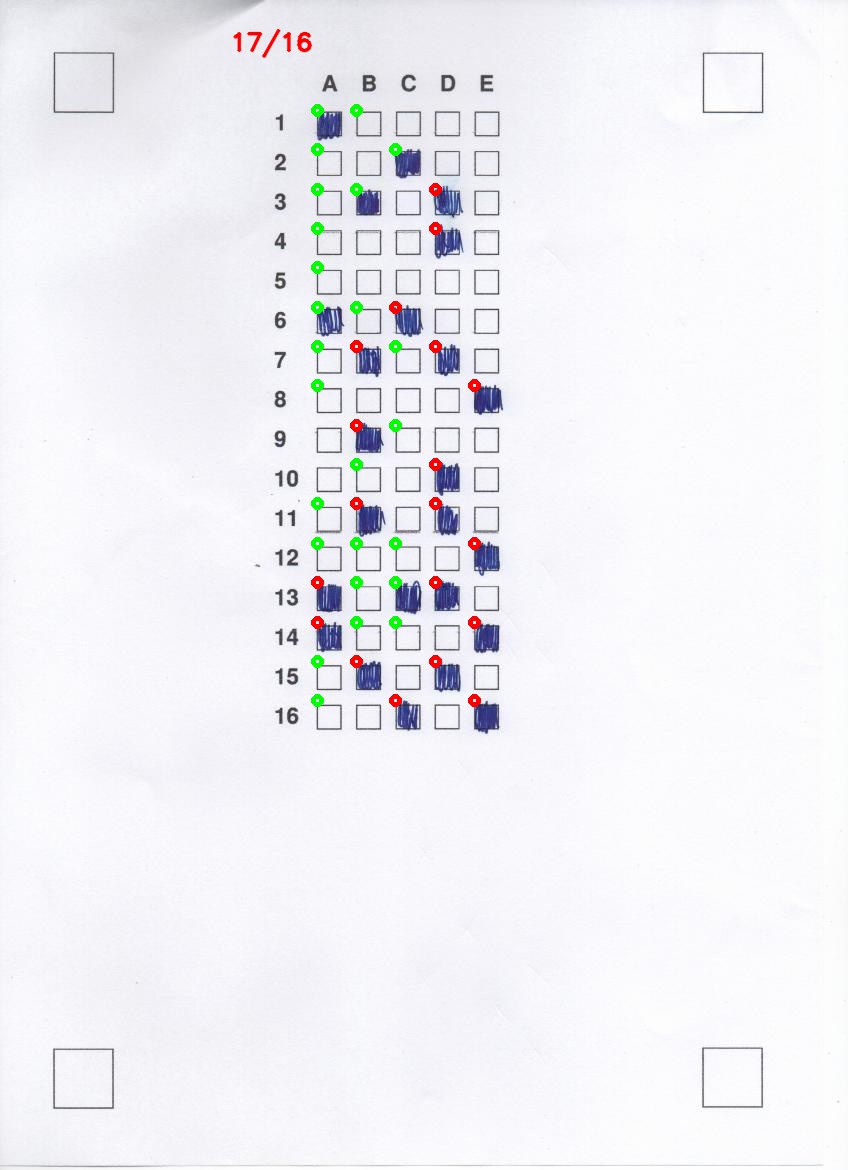 17/16
A B C D E
1
2
3
4
5
6
7
8
9
10
11
12
13
14
15
16